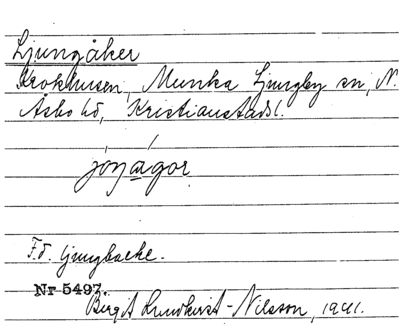 Ljungåker
Krokhusen, Munka Ljungby sn, N.
Asbo hd, Kristianstads l.
jóŋágor
F.d. ljungbacke.
Nr 5497.
Birgit Lundkvist-Nilsson, 1941.